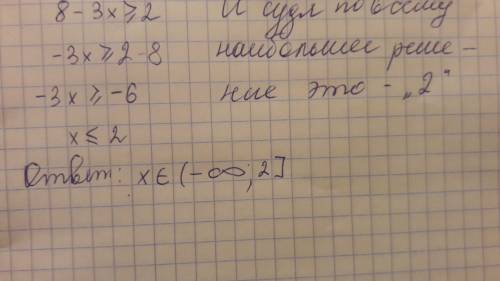 8 - 3x ⩾ 2 И судя по всему
-3x ⩾ 2-8 наибольшее реше-
-3x ⩾ -6 ние это - „2"
x ≤ 2
Ответ: x ∈ (-∞; 2]